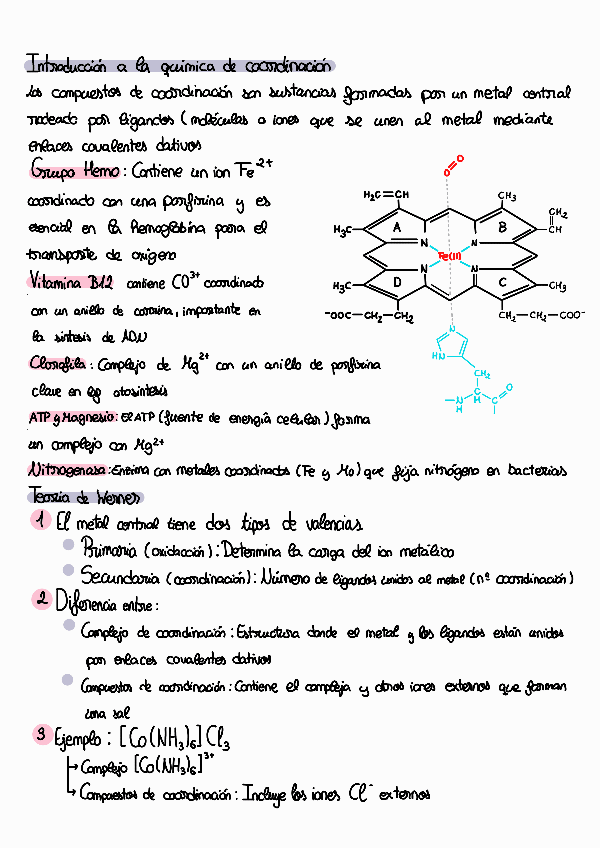 Introducción a la química de coordinación
Los compuestos de coordinación son sustancias formadas por un metal central
rodeado por ligandos (moléculas o iones que se unen al metal mediante
enlaces covalentes dativos
Grupo Hemo: Contiene un ion Fe²⁺
coordinado con una porfirina y es
esencial en la hemoglobina para el
transporte de oxígeno
Vitamina B12 contiene CO³⁺ coordinado
con un anillo de corrina, importante en
la síntesis de ADN
Clorofila: Complejo de Mg²⁺ con un anillo de porfirina
clave en la fotosíntesis
ATP y Magnesio: El ATP (fuente de energía celular) forma
un complejo con Mg²⁺
Nitrogenasa: Enzima con metales coordinados (Fe y Mo) que fija nitrógeno en bacterias
O
O
H₂C=CH
CH₃
CH₂
CH
H₃C
A
B
N
N
Fe(II)
N
N
D
C
H₃C
CH₃
⁻OOC—CH₂—CH₂
CH₂—CH₂—COO⁻
N
HN
CH₂
N
H
C
H
C
O
Teoría de Werner
1 El metal central tiene dos tipos de valencias
Primaria (oxidación): Determina la carga del ion metálico
Secundaria (coordinación): Número de ligandos unidos al metal (nº coordinación)
2 Diferencia entre:
Complejo de coordinación: Estructura donde el metal y los ligandos están unidos
por enlaces covalentes dativos
Compuestos de coordinación: Contiene el complejo y otros iones externos que forman
una sal
3 Ejemplo: [Co(NH₃)₆]Cl₃
Complejo [Co(NH₃)₆]³⁺
Compuestos de coordinación: Incluye los iones Cl⁻ externos